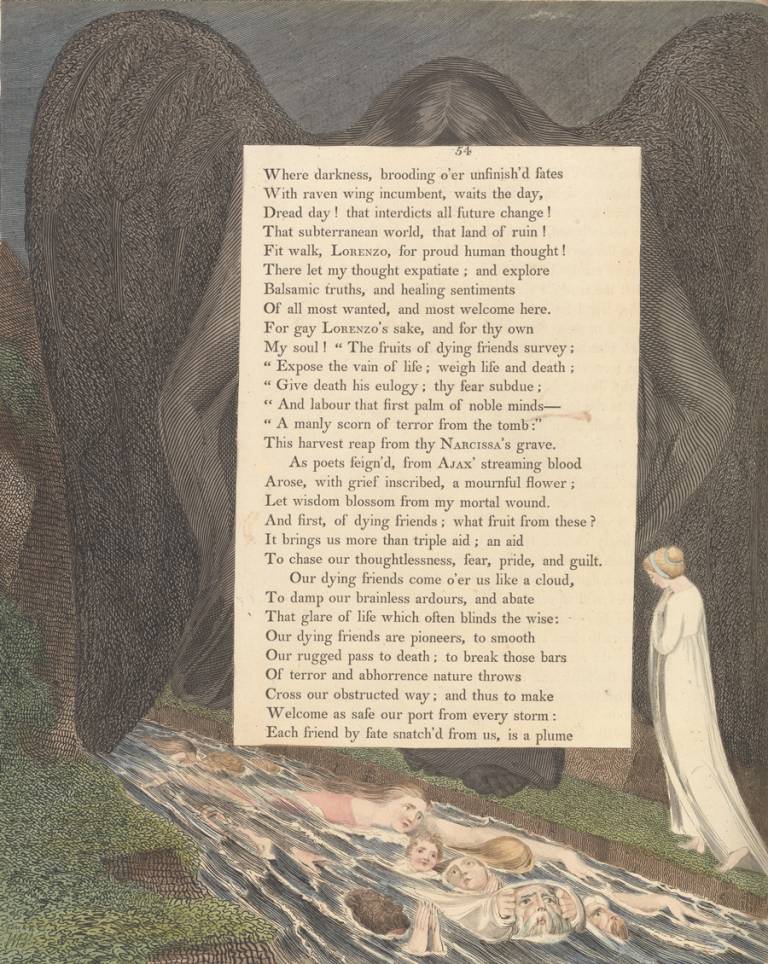 54
Where darkness, brooding o'er unfinish'd fates
With raven wing incumbent, waits the day,
Dread day! that interdicts all future change!
That subterranean world, that land of ruin!
Fit walk, LORENZO, for proud human thought!
There let my thought expatiate; and explore
Balsamic truths, and healing sentiments
Of all most wanted, and most welcome here.
For gay LORENZO'S sake, and for thy own
My soul! “ The fruits of dying friends survey;
“ Expose the vain of life; weigh life and death;
“ Give death his eulogy; thy fear subdue;
“ And labour that first palm of noble minds—
“ A manly scorn of terror from the tomb:”
This harvest reap from thy NARCISSA'S grave.
As poets feign'd, from AJAX' streaming blood
Arose, with grief inscribed, a mournful flower;
Let wisdom blossom from my mortal wound.
And first, of dying friends; what fruit from these?
It brings us more than triple aid; an aid
To chase our thoughtlessness, fear, pride, and guilt.
Our dying friends come o'er us like a cloud,
To damp our brainless ardours, and abate
That glare of life which often blinds the wise:
Our dying friends are pioneers, to smooth
Our rugged pass to death; to break those bars
Of terror and abhorrence nature throws
Cross our obstructed way; and thus to make
Welcome as safe our port from every storm:
Each friend by fate snatch'd from us, is a plume